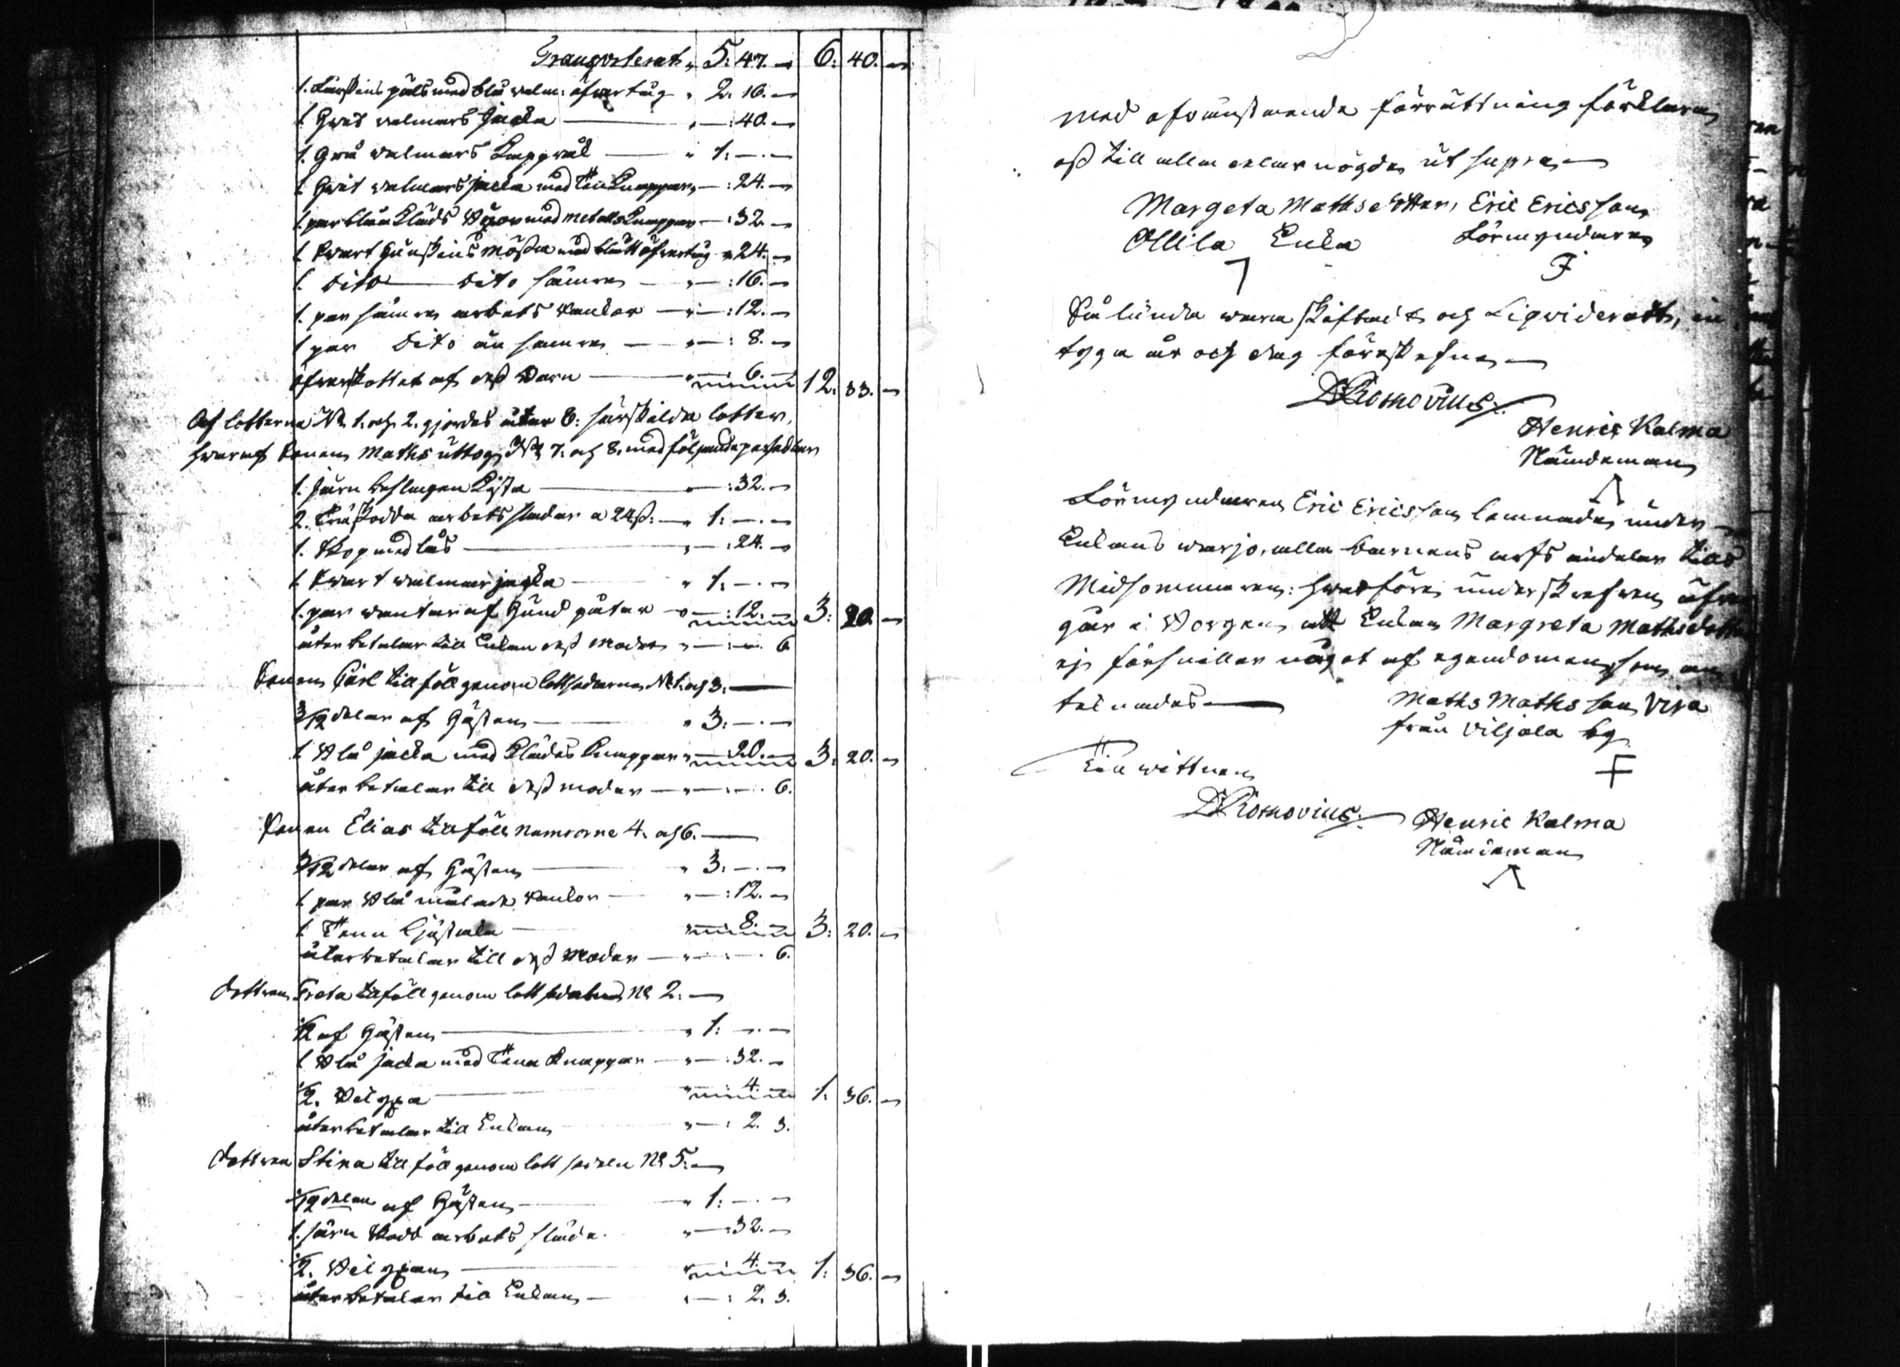 Transporterat 5: 47. — 6: 40. —
1. Fårskins päls med blå valm: öfvertug 2. 16. —
1 Grå valmars jacka — : 40. —
1. Grå valmars Kappråck 1: — . —
1 Grå valmars jacka med Ten Knappar — : 24. —
1 par blåa Klädes Byxor med metalls Knappar — : 32. —
1 svart Hunskins mössa med blått öfvertug 24. —
1. Dito Dito sämre — : 16. —
1. par sämre arbets vantar — : 12. —
1 par Dito än sämre — : 8. —
öfverskottet af dess Barn — : 6. — 12. 33. —
Af lotterna No 1. och 2. gjordes åter 8. särskilda lotter,
hvaraf sonen Maths uttog No 7. och 8. med följande persedlar
1. Järn beslagen Kista — : 32. —
2. Träskodda arbets slädar a 24 s: 1: — . —
1. Skop med lås — : 24. —
1 svart valmars jacka 1: — . —
1. par vantar af Hund påtar — : 12. — 3: 20. —
återbetalar till Enkan dess moder — : — . 6
Sonen Carl tillföll genom lottsedlarna No 1. och 3. —
3/12 delar af Hästen 3: — . —
1 Blå jacka med Klädes Knappar 20. — 3: 20. —
återbetalar till dess moder — . — . 6.
Sonen Elias tillföll numrorne 4. och 6. —
3/12 delar af Hästen 3. — . —
1 par Blå målade vantar — : 12. —
1. Tenn Ljustaka 8. — 3: 20. —
återbetalar till dess Moder — . — 6.
dottren Greta tillföll genom lott sedeln No 2: —
1/12 af Hästen 1. — . —
1 Blå jacka med Tenn Knappar — : 32. —
1/2. 4. — 1. 36. —
återbetalar till Enkan — : 2. 3.
dottren Stina tillföll genom lott sedeln No 5. —
1/12 delen af Hästen 1: — . —
1. Järn skodd arbets släde — : 32. —
1/2. 4. — 1: 36. —
återbetalar till Enkan — : 2. 3.
med ofvanstående förrättning förklara
oss till alla delar nögde, ut supra —
Margeta Mathsdotter, Eric Ericsson
Ollila Enka Förmyndare
Sålunda vara skiftadt och Liqvideradt, in
tyga år och dag förskrefne —
Henric Kalma
Nämdeman
Förmyndaren Eric Ericsson lemnade under
Enkans varjo, alla barnens arfs andelar till
Midsommaren: hvarföre underskrefven
går i Borgen att Enkan Margreta Mathsdotter
ej förskiller något af egendomen, som
Maths Mathsson
från Viljala by
Till vittnen
Henric Kalma
Nämdeman